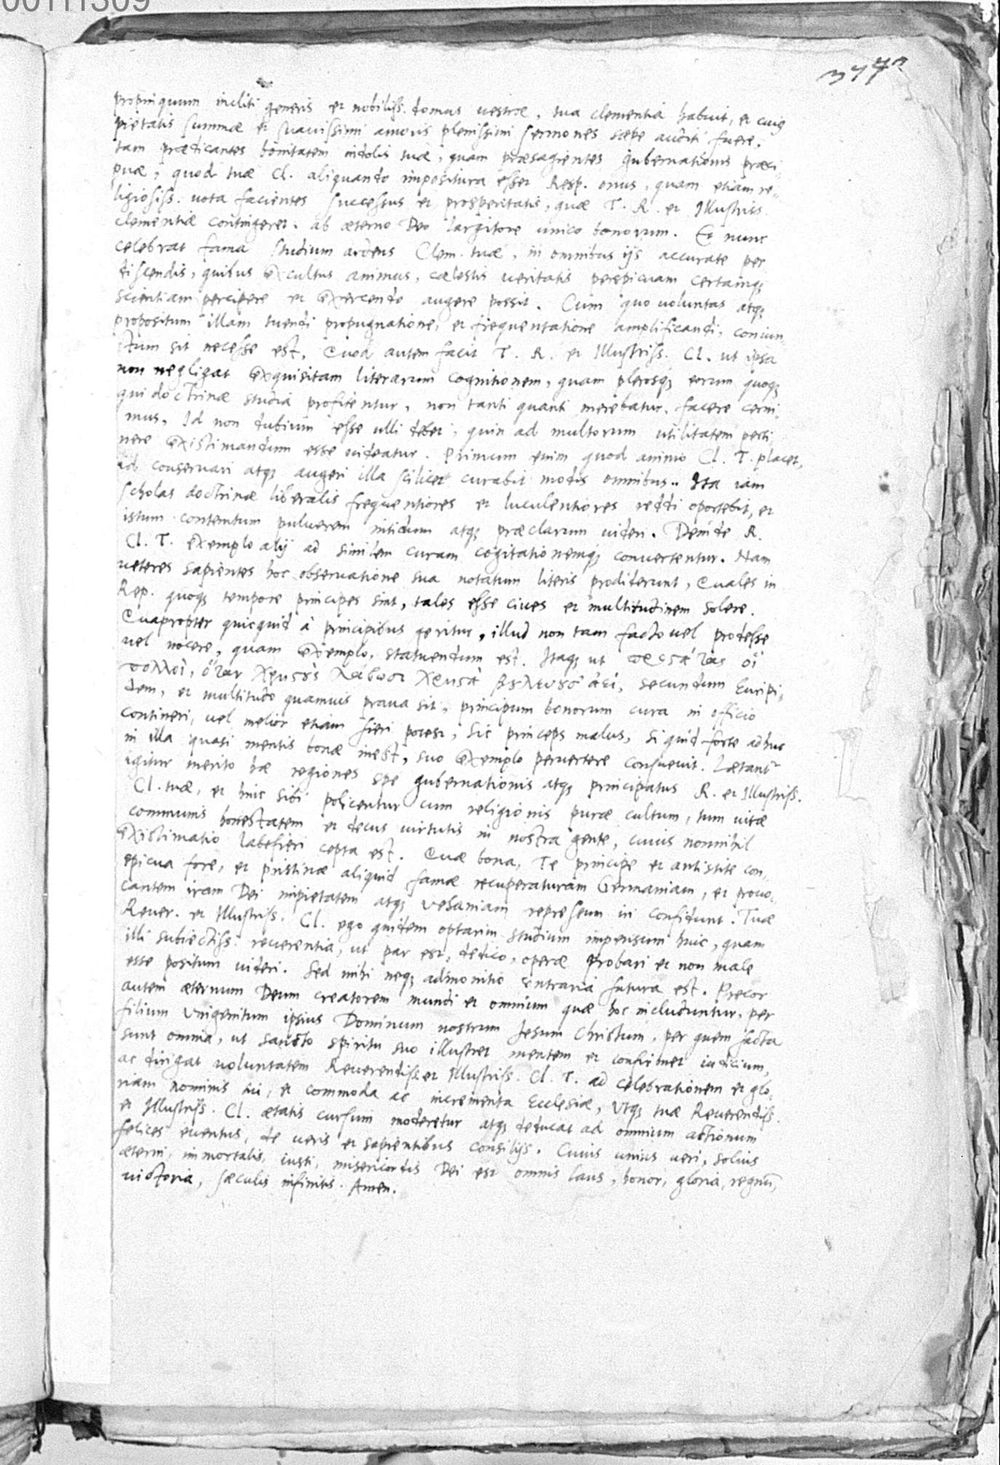 00111309
3773
propinquum incliti generis et nobiliss. domus vestræ, tua clementia habuit, et cuius
pietatis summæ et suavissimi amoris plenissimi sermones sæpe auditi fuere,
tam prædicantes bonitatem indolis tuæ, quam præsagientes gubernationis præci-
puæ, quod tuæ Cl. aliquando impositura esset Resp. onus, quam etiam re-
ligiosiss. uota facientes successus et prosperitatis, quæ T. R. et Illustriss.
clementiæ contingeret. ab æterno Deo largitore unico bonorum. Et nunc
celebrat fama studium ardens Clem. tuæ, in omnibus ijs accurate per
discendis, quibus excultus animus, cælestis ueritatis perspicuam certamq;
scientiam percipere et exercendo augere possit. Cum quo uoluntas atq;
propositum illam tuendi propugnatione, et frequentatione amplificandi, coniun
ctum sit necesse est. Quod autem facit T. R. et Illustriss. Cl. ut ipsa
non negligat exquisitam literarum cognitionem, quam plerosq; eorum quoq;
qui doctrinæ studia profitentur, non tanti quanti merebatur, facere cerni-
mus. Id non dubium esse ulli debet, quin ad multorum utilitatem perti
nere existimandum esse uideatur. Primum enim quod animo Cl. T. placet,
id conservari atq; augeri illa scilicet curabit modis omnibus. Ita iam
scholas doctrinæ liberalis frequentiores et luculentiores reddi oportebit, et
istum contemtum puluerem nitidum atq; præclarum uideri. Deinde R.
Cl. T. exemplo alij ad similem curam cogitationemq; convertentur. Nam
ueteres sapientes hoc observatione sua notatum literis prodiderunt, Quales in
Rep. quoq; tempore principes sint, tales esse ciues et multitudinem solere.
Quapropter quicquid à principibus geritur, illud non tam facto uel prodesse
uel nocere, quam exemplo, statuendum est. Itaq; ut οἱ
πολλοὶ, ὅταν χρηστοὺς λάβωσι χρηστὰ βουλεύουσ' ἀεί, secundum Euripi-
dem, et multitudo quamuis praua sit, principum bonorum cura in officio
contineri, uel melior etiam fieri potest, sic princeps malus, si quid forte adhuc
in illa quasi mentis bonæ inest, suo exemplo pervertere consueuit. Lætantur
igitur merito hæ regiones spe gubernationis atq; principatus R. et Illustriss.
Cl. tuæ, et hinc sibi policentur cum religionis puræ cultum, tum uitæ
communis honestatem et decus uirtutis in nostra gente, cuius nonnihil
existimatio labefieri cepta est. Quæ bona, Te principe et antistite con-
spicua fore, et pristinæ aliquid famæ recuperaturam Germaniam, et prouo-
cantem iram Dei impietatem atq; vesaniam repressum iri confidunt. Tuæ
Reuer. et Illustriss. Cl. ego quidem optarim studium impensum huic, quam
illi subiectiss. reuerentia, ut par est, dedico, operæ probari et non male
esse positum uideri. Sed mihi neq; admonitio contraria futura est. Precor
autem æternum Deum creatorem mundi et omnium quæ hoc includuntur, per
filium Unigenitum ipsius Dominum nostrum Jesum Christum, per quem facta
sunt omnia, ut sancto spiritu suo illustret mentem et confirmet iudicium,
ac dirigat uoluntatem Reverendiss. et Illustriss. Cl. T. ad celebrationem et glo-
riam nominis sui, et commoda ac incrementa Ecclesiæ, Utq; tuæ Reuerendiss.
et Illustriss. Cl. ætatis cursum moderetur atq; deducat ad omnium actionum
felices euentus, de ueris et sapientibus consilijs. Cuius unius ueri, solius
æterni, immortalis, iusti, misericordis Dei est omnis laus, honor, gloria, regnum,
uictoria, sæculis infinitis. Amen.